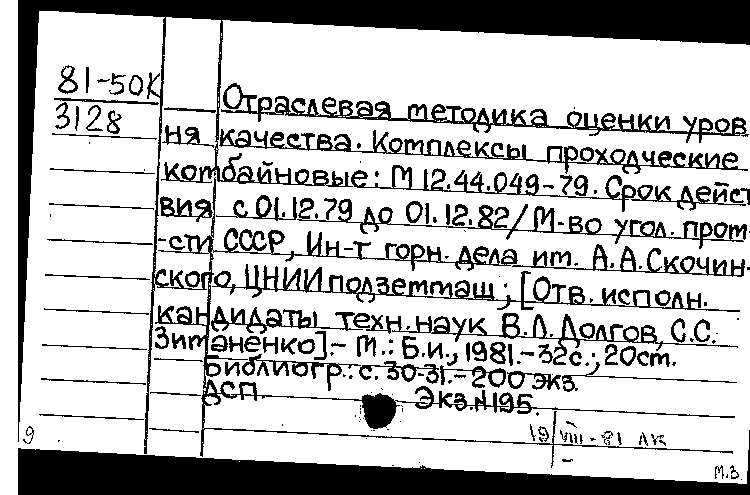 81-50К
3128
Отраслевая методика оценки уров
ня качества. Комплексы проходческие
комбайновые: М 12.44.049-79. Срок дейст
вия с 01.12.79 до 01.12.82/ М-во угол. пром-
-сти СССР, Ин-т горн. дела им. А.А.Скочин-
ского, ЦНИИподземмаш; [Отв. исполн.
кандидаты техн. наук В.Л.Долгов, С.С.
Зиманенко].- М.: Б.и., 1981.-32с.; 20см.
Библиогр.: с. 30-31.- 200 экз.
ДСП. Экз.№195.
9 19 VIII-81 АК
М.З